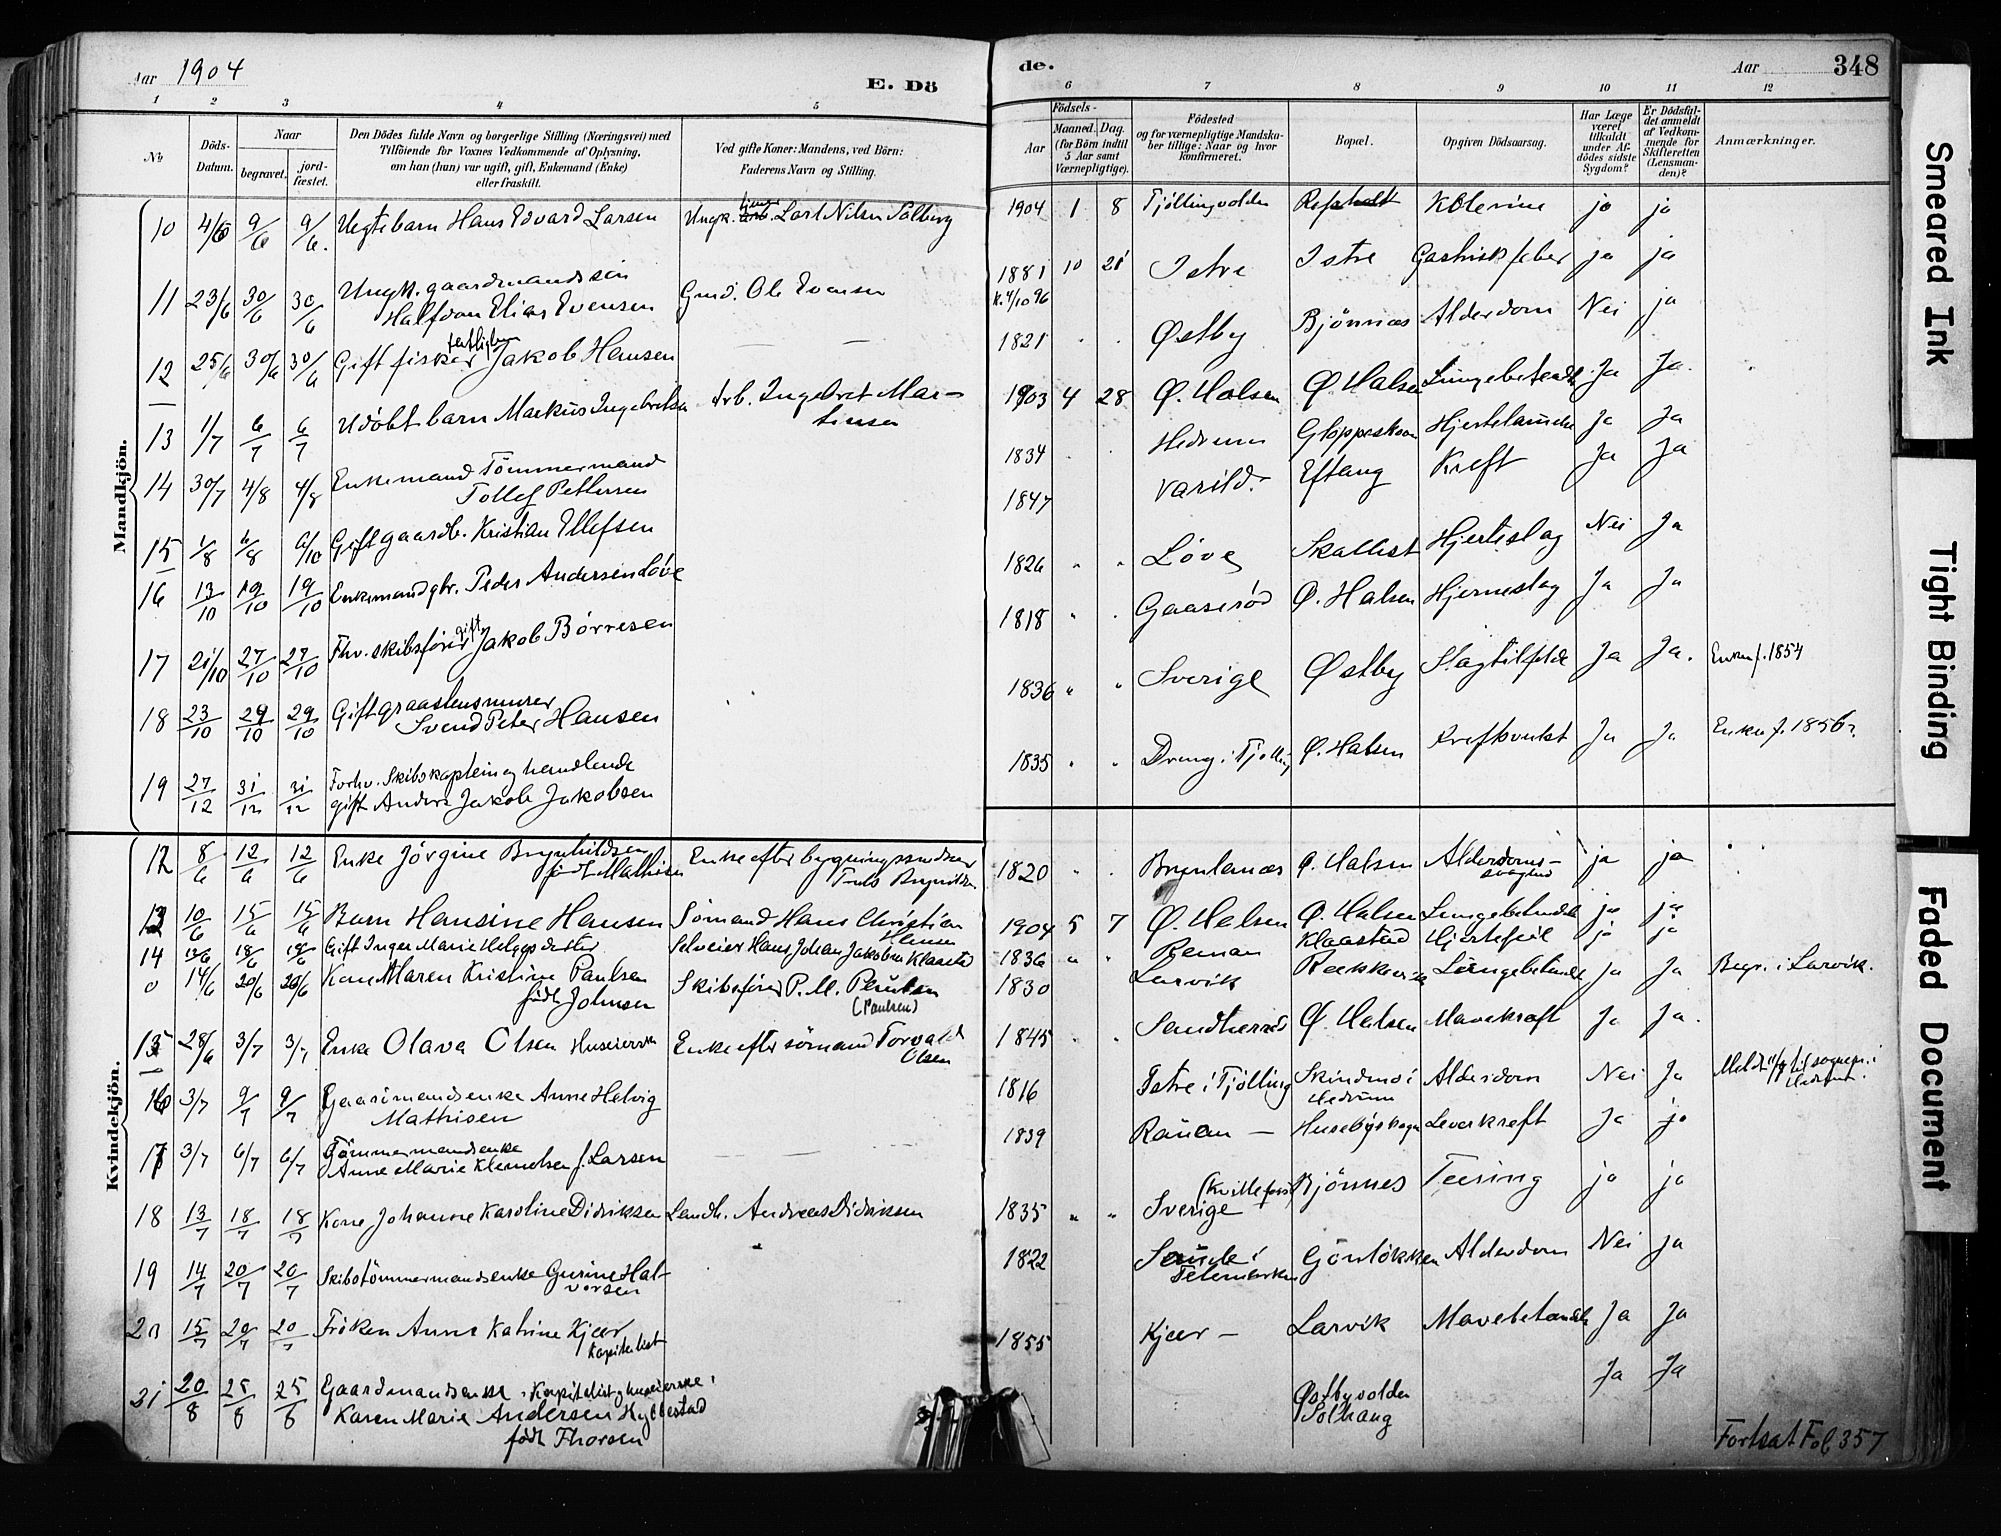 Aar 1904
E. Dö
de.
Aar
348
1 2 3 4 5 6 7 8 9 10 11 12
No
Döds-
Datum.
Naar
begravet.
jord-
fæstet.
Den Dödes fulde Navn og borgerlige Stilling (Næringsvei) med
Tilföiende for Voxnes Vedkommende af Oplysning,
om han (hun) var ugift, gift, Enkemand (Enke)
eller fraskilt.
Ved gifte Koner: Mandens, ved Börn:
Faderens Navn og Stilling.
Födsels-
Aar
Maaned.
Dag.
(for Börn indtil
5 Aar samt
Værnepligtige).
Födested
og for værnepligtige Mandska-
ber tillige: Naar og hvor
konfirmeret.
Bopæl.
Opgiven Dödsaarsag.
Har Læge
været
tilkaldt
under Af-
dödes sidste
Sygdom?
Er Dödsfal-
det anmeldt
af Vedkom-
mende for
Skifteretten
(Lensman-
den)?
Anmærkninger.
Mandkjön.
10 4/6 9/6 9/6. Uegtebarn Hans Edvard Larsen Ungk. Karl Nilsen Solberg 1904 1 8 Tjøllingvolden Kolerine ja ja
11 23/6 30/6 30/6 Ungk. gaardmandssøn
Halfdan Elias Evensen Gmd. Ole Evensen 1881 10 21 Istre Istre Gastrisk feber ja ja
K. 4/10 96
12 25/6 30/6 30/6 Gift fisker Jakob Hansen 1821 Østby Bjönnæs Alderdom Nei ja
fattiglem
13 1/7 6/7 6/7 Udöbt barn Markus Ingebretsen Arb. Ingebret Mar-
tinsen 1903 4 28 Ø. Halsen Ø. Halsen Lungebetendls Ja Ja.
14 30/7 4/8 4/8 Enkemand Tömmermand
Tollef Pettersen 1834 Hedrum Gloppeskoven Hjertelammelse Ja Ja
15 1/8 6/8 6/10 Gift gaardb. Kristian Ellefsen 1847 Varild. Eftang Kreft Ja Ja
16 13/10 19/10 19/10 Enkemand gbr. Peder Andersen Löve 1826 Løve Skallist Hjerteslag Nei Ja
17 21/10 27/10 27/10 Fhv. skibsfører gift Jakob Börresen 1818 Gaaserød Ø. Halsen Hjerneslag Ja Ja
18 23/10 29/10 29/10 Gift graastensmurer
Svend Peter Hansen 1836 Sverige Østby Slagtilfælde Ja Ja. Enken f. 1854
19 27/12 31/12 31/12 Forhv. Skibskaptein og handlende
gift Anders Jakob Jakobsen 1835 Dreng i Tjølling Ø. Halsen Ja Ja Enken f. 1856
Kvindekjön.
12 8/6 12/6 12/6 Enke Jörgine Brynhildsen
född Mathisen Enke efter bygningssnedker
Truls Brynildsen 1820 Brynlanæs Ø. Halsen Alderdoms-
svaghed ja ja
13 10/6 15/6 15/6 Barn Hansine Hansen Sömand Hans Christian
Hansen 1904 5 7 Ø. Halsen Ø. Halsen Lungebetendlse ja ja
14 13/6 18/6 18/6 Gift Inger Marie Helgesdatter Selveier Hans Johan Jakobsen Klaastad 1836 Reman Klaastad Hjertefeil ja ja
0 14/6 20/6 20/6 Kone Maren Kristine Paulsen
född Johnsen Skibsförer P. M. Poulsen
(Paulsen) 1830 Larvik Rækkevik Lungebetendlse Ja Ja Begr. i Larvik.
15 28/6 3/7 3/7 Enke Olava Olsen Huseierske Enke efter sömand Torvald
Olsen 1845 Sandherred Ø. Halsen Mavekræft Ja Ja.
16 3/7 9/7 9/7 Gaardmandsenke Anne Helvig
Mathisen 1816 Istre i Tjølling Skindmo i
Hedrum Alderdom Nei Ja Meldt til sognepr. i
Hedrum.
17 3/7 6/7 6/7 Tömmermandsenke
Anne Marie Klemetsen f. Larsen 1839 Rauan — Husebyskogen Leverkreft Ja ja
18 13/7 18/7 18/7 Kone Johanne Karoline Didriksen Landh. Andreas Didriksen 1835 Sverige Bjönnes Tæring ja ja
19 14/7 20/7 20/7 Skibstömmermandsenke Gurine Hal-
vorsen 1822 Saude i
Telemarken Gönlökken Alderdom Nei ja
20 15/7 20/7 20/7 Fröken Anne Katrine Kjær
Kapitalist 1855 Kjær — Larvik Mavebetændls Ja Ja
21 20/8 25/8 25/8 Gaardmandsenke, Kapitalist og huseierske,
Karen Marie Andersen Hybbestad
född Thorsen Østbyvolden
Solhaug Ja Ja
Fortsat Fol 357
Smeared Ink
Tight Binding
Faded Document